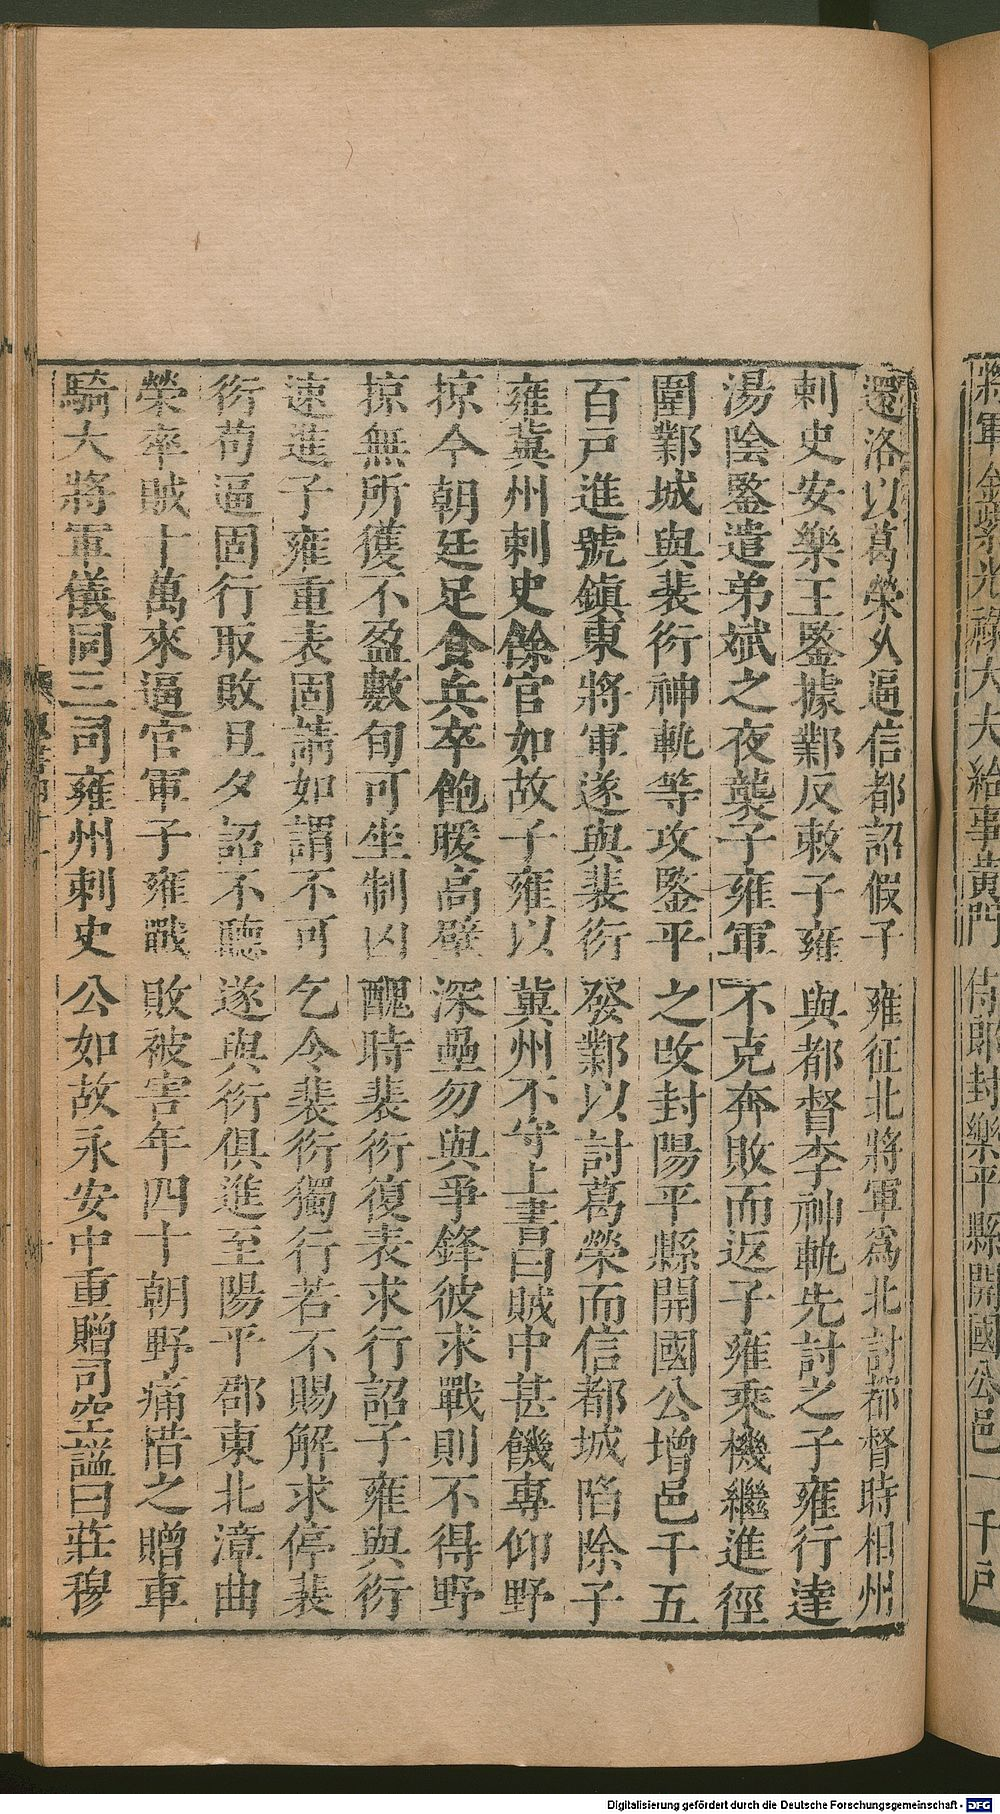 將軍金紫光祿大夫給事黃門侍郎封樂平縣開國公邑一千戶
還洛以葛榮乆逼信都詔假子雍征北將軍爲北討都督時相州
刺史安樂王鑒據鄴反敕子雍與都督李神軌先討之子雍行達
湯陰鑒遣弟斌之夜襲子雍軍不克奔敗而返子雍乘機繼進徑
圍鄴城與裴衍神軌等攻鑒平之改封陽平縣開國公增邑千五
百戸進號鎮東將軍遂與裴衍發鄴以討葛榮而信都城陷除子
雍冀州刺史餘官如故子雍以冀州不守上書曰賊中甚饑專仰野
掠今朝廷足食兵卒飽暖高壁深壘勿與爭鋒彼求戰則不得野
掠無所獲不盈數旬可坐制凶醜時裴衍復表求行詔子雍與衍
速進子雍重表固請如謂不可乞令裴衍獨行若不賜解求停裴
衍苟逼固行取敗旦夕詔不聽遂與衍俱進至陽平郡東北漳曲
榮率賊十萬來逼官軍子雍戰敗被害年四十朝野痛惜之贈車
騎大將軍儀同三司雍州刺史公如故永安中重贈司空謚曰莊穆
Digitalisierung gefördert durch die Deutsche Forschungsgemeinschaft - DFG